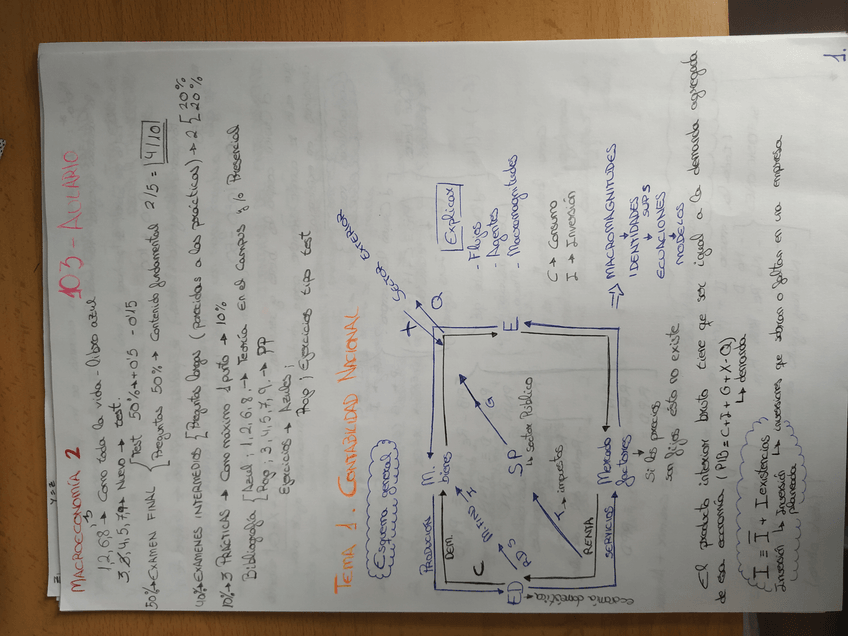 MACROECONOMÍA 2
103 - AULARIO
1,2,6,8 → Como toda la vida - libro azul
3, 4, 5, 7, 9 → Nuevo → test.
50% → EXAMEN FINAL
Test 50% → +0'5 -0'15
Preguntas 50% → Contenido fundamental 2/5 = 4/10
40% → EXÁMENES INTERMEDIOS [Preguntas largas (parecidas a las prácticas) → 2 [20% 20%
10% → 3 PRÁCTICAS → Como máximo 1 punto → 10%
Bibliografía [Azul; 1, 2, 6, 8 → Teoría En el campus y/o Presencial
Rojo; 3, 4, 5, 7, 9. → PP
Ejercicios → Azules;
Rojo) Ejercicios tipo test
TEMA 1. CONTABILIDAD NACIONAL
Esquema general
SECTOR EXTERIOR
X
Q
Explicar
- Flujos
- Agentes
- Macromagnitudes
PRODUCCION
M. bienes
DEM.
C
G
E
ED
economía doméstica
SP
↳ sector Público
T → impuestos
RENTA
SERVICIOS
Mercado factores
C → Consumo
I → Inversión
⇒ MACROMAGNITUDES
IDENTIDADES
↓ SUPS
ECUACIONES
↓
MODELOS
Si los precios
son fijos ésto no existe
El producto interior bruto tiene que ser igual a la demanda agregada
de esa economía (PIB = C+I+G+X-Q)
↳ demanda
I ≡ I + Iexistencias
Inversión ↳ Inversión planeada ↳ inversiones que sobran o faltan en una empresa
1.